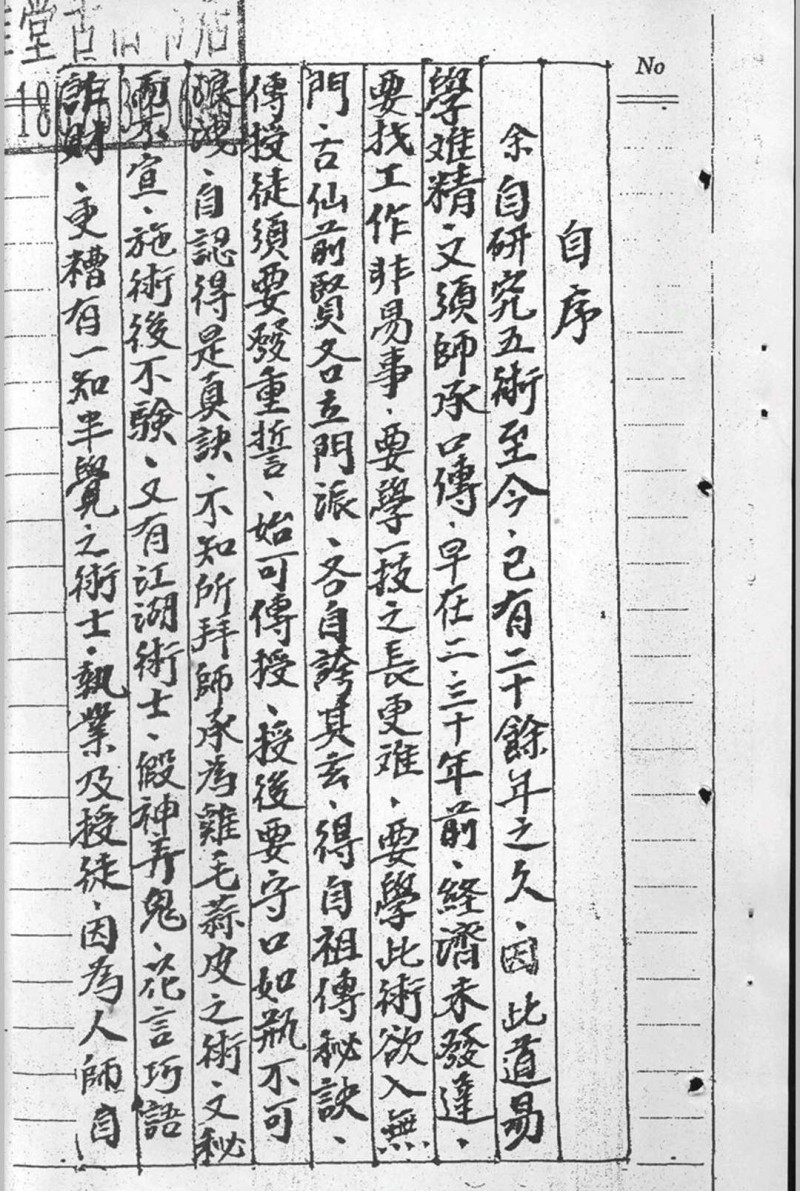 No
自序
余自研究五術至今、已有二十餘年之久、因此道易
學难精、又須師承口傳、早在二、三十年前、経濟未發達、
要找工作非易事、要學一技之長更难、要學此術欲入無
門、古仙前賢各立門派、各自誇其玄、得自祖傳秘訣、
傳授徒須要發重誓、始可傳授、授後要守口如瓶不可
洩、自認得是真訣、不知所拜師承為雞毛蒜皮之術、又秘
而不宣、施術後不験、又有江湖術士、假神弄鬼、花言巧語
詐財、更糟有一知半覺之術士、執業及授徒、因為人師自